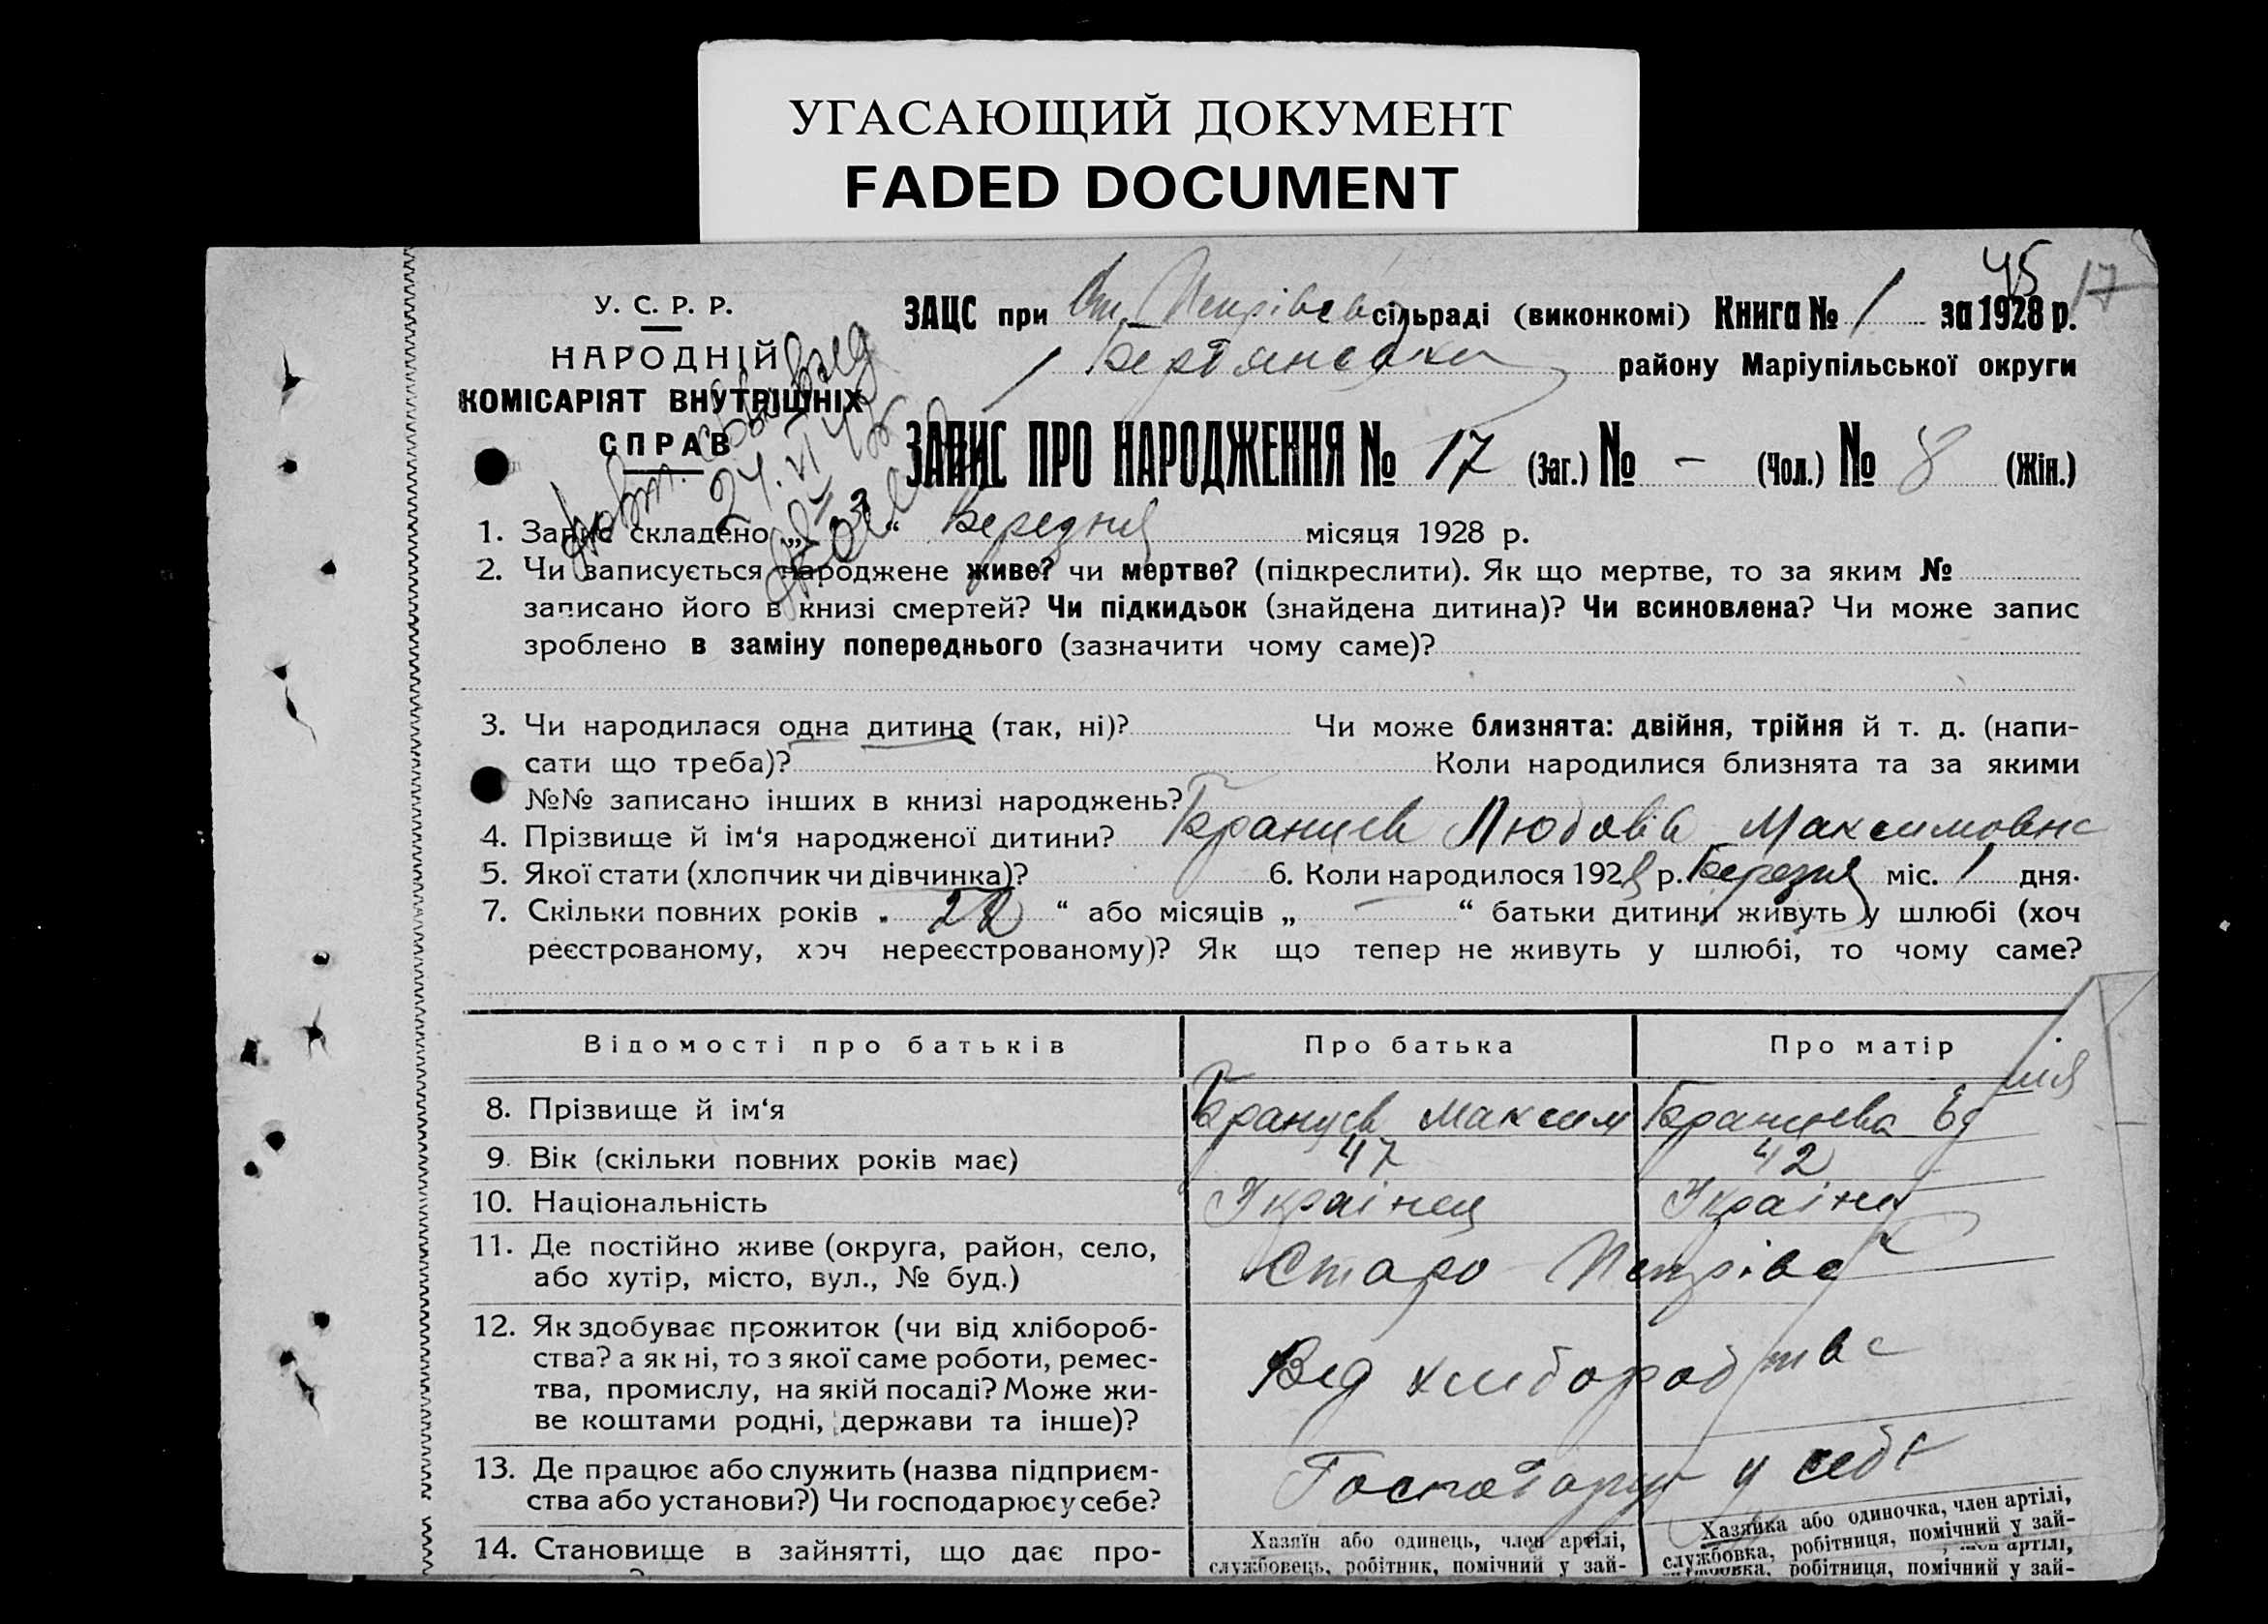 УГАСАЮЩИЙ ДОКУМЕНТ
FADED DOCUMENT
45 17
У. С. Р. Р.
НАРОДНІЙ
КОМІСАРІЯТ ВНУТРІШНІХ
СПРАВ
ЗАЦС при Ст. Петрівській сільраді (виконкомі) Книга № 1 за 1928 р.
Бердянська району Маріупільської округи
ЗАПИС ПРО НАРОДЖЕННЯ № 17 (Заг.) № - (Чол.) № 8 (Жін.)
24. VI 45
1. Запис складено „ 3 “ Березня місяця 1928 р.
2. Чи записується народжене живе? чи мертве? (підкреслити). Як що мертве, то за яким №
записано його в книзі смертей? Чи підкидьок (знайдена дитина)? Чи всиновлена? Чи може запис
зроблено в заміну попереднього (зазначити чому саме)?
3. Чи народилася одна дитина (так, ні)? Чи може близнята: двійня, трійня й т. д. (напи-
сати що треба)? Коли народилися близнята та за якими
№№ записано інших в книзі народжень?
4. Прізвище й ім‘я народженої дитини? Бранцев Любовів Максимовна
5. Якої стати (хлопчик чи дівчинка)? 6. Коли народилося 1928 р. Березня міс. 1 дня.
7. Скільки повних років „ 22 “ або місяців „ — “ батьки дитини живуть у шлюбі (хоч
реєстрованому, хоч нереєстрованому)? Як що тепер не живуть у шлюбі, то чому саме?
Відомості про батьків Про батька Про матір
8. Прізвище й ім‘я Бранцев Максим Бранцева
9. Вік (скільки повних років має) 47 42
10. Національність Українец Україн
11. Де постійно живе (округа, район, село,
або хутір, місто, вул., № буд.) Старо Петрівс
12. Як здобуває прожиток (чи від хлібороб-
ства? а як ні, то з якої саме роботи, ремес-
тва, промислу, на якій посаді? Може жи-
ве коштами родні, держави та інше)? Від хлиборобтва
13. Де працює або служить (назва підприєм-
ства або установи?) Чи господарює у себе? Господарує у себе
14. Становище в зайнятті, що дає про-
Хазяїн або одинець, член артілі,
службовець, робітник, помічний у зай-
Хазяйка або одиночка, член артілі,
службовка, робітниця, помічний у зай-
артілі,
робітниця, помічний у зай-